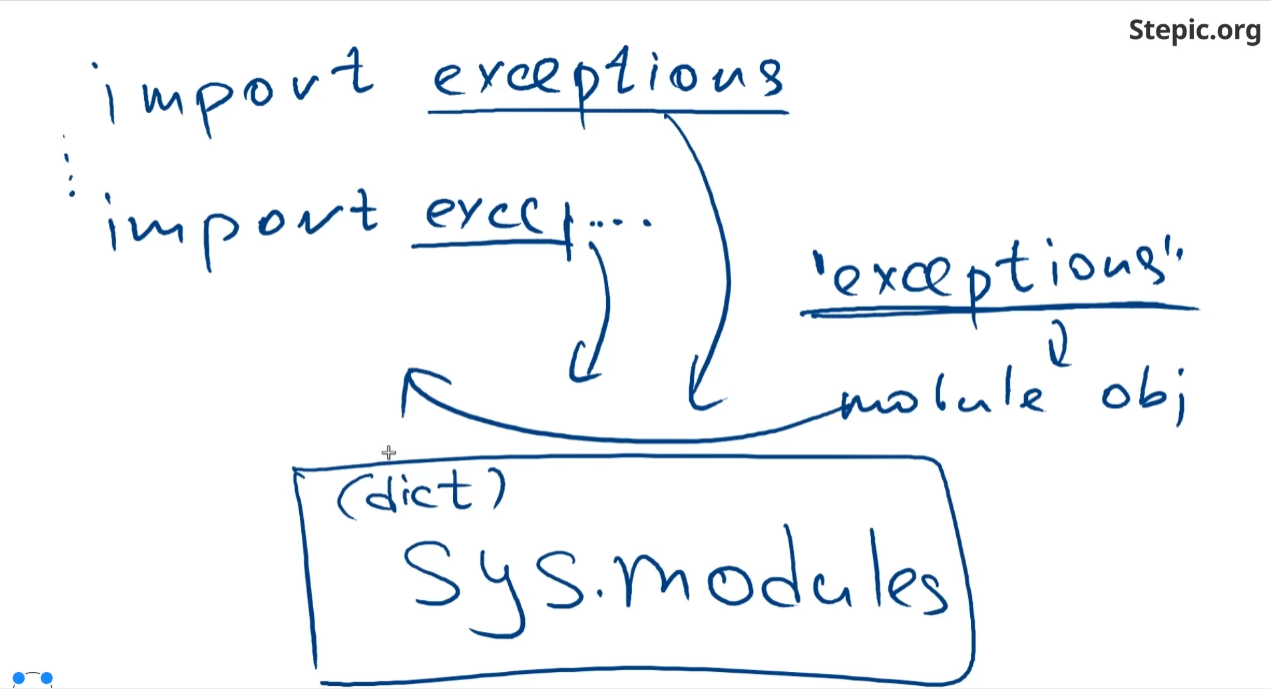 Stepic.org
import exceptions
import excep...
"exceptions"
module obj
(dict)
sys.modules